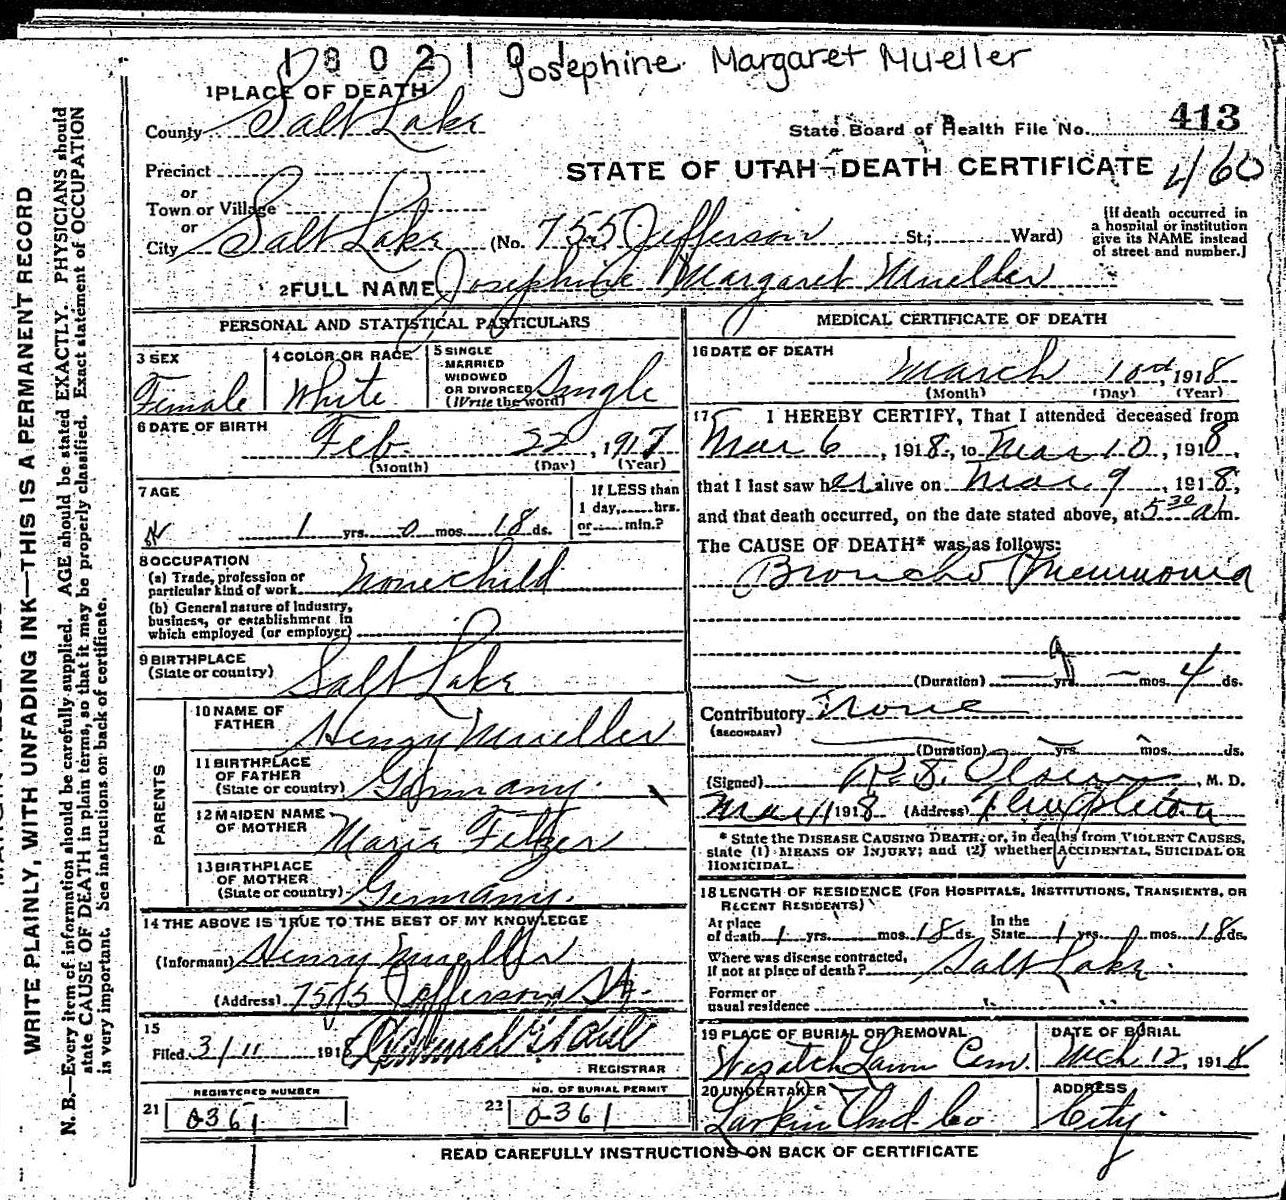 1802101 Josephine Margaret Mueller
1 PLACE OF DEATH
County Salt Lake
State Board of Health File No. 413
Precinct
STATE OF UTAH—DEATH CERTIFICATE 460
or
Town or Village
or
City Salt Lake (No. 755 Jefferson St.; Ward)
[If death occurred in
a hospital or institution
give its NAME instead
of street and number.]
2 FULL NAME Josephine Margaret Mueller
PERSONAL AND STATISTICAL PARTICULARS
3 SEX
Female
4 COLOR OR RACE
White
5 SINGLE
MARRIED
WIDOWED
OR DIVORCED
(Write the word) Single
6 DATE OF BIRTH
Feb 22, 1917
(Month) (Day) (Year)
7 AGE
1 yrs. 0 mos. 18 ds.
If LESS than
1 day, hrs.
or min.?
8 OCCUPATION
(a) Trade, profession or
particular kind of work None child
(b) General nature of Industry,
business, or establishment in
which employed (or employer)
9 BIRTHPLACE
(State or country) Salt Lake
PARENTS
10 NAME OF
FATHER Henry Mueller
11 BIRTHPLACE
OF FATHER
(State or country) Germany.
12 MAIDEN NAME
OF MOTHER Maria
13 BIRTHPLACE
OF MOTHER
(State or country) Germany.
14 THE ABOVE IS TRUE TO THE BEST OF MY KNOWLEDGE
(Informant) Henry Mueller
(Address) 755 Jefferson St.
15
Filed 3/11 1918
REGISTRAR
REGISTERED NUMBER
21 0361
NO. OF BURIAL PERMIT
22 0361
MEDICAL CERTIFICATE OF DEATH
16 DATE OF DEATH
March 10, 1918
(Month) (Day) (Year)
17 I HEREBY CERTIFY, That I attended deceased from
Mar 6, 1918, to Mar 10, 1918,
that I last saw her alive on Mar 9, 1918,
and that death occurred, on the date stated above, at 5 30 a m.
The CAUSE OF DEATH* was as follows:
Broncho Pneumonia
(Duration) yrs. mos. 4 ds.
Contributory None
(SECONDARY)
(Duration) yrs. mos. ds.
(Signed) Olsen, M. D.
Mar 11 1918 (Address) Templeton
* State the DISEASE CAUSING DEATH; or, in deaths from VIOLENT CAUSES,
state (1) MEANS OF INJURY; and (2) whether ACCIDENTAL, SUICIDAL OR
HOMICIDAL.
18 LENGTH OF RESIDENCE (FOR HOSPITALS, INSTITUTIONS, TRANSIENTS, OR
RECENT RESIDENTS)
At place
of death 1 yrs. mos. 18 ds.
In the
State 1 yrs. mos. 18 ds.
Where was disease contracted,
if not at place of death? Salt Lake
Former or
usual residence
19 PLACE OF BURIAL OR REMOVAL
Wasatch Lawn Cem.
DATE OF BURIAL
Mch 12, 1918
20 UNDERTAKER
Larkin Und. Co
ADDRESS
City.
READ CAREFULLY INSTRUCTIONS ON BACK OF CERTIFICATE
WRITE PLAINLY, WITH UNFADING INK—THIS IS A PERMANENT RECORD
N. B.—Every item of information should be carefully supplied. AGE should be stated EXACTLY. PHYSICIANS should
state CAUSE OF DEATH in plain terms, so that it may be properly classified. Exact statement of OCCUPATION
is very important. See instructions on back of certificate.